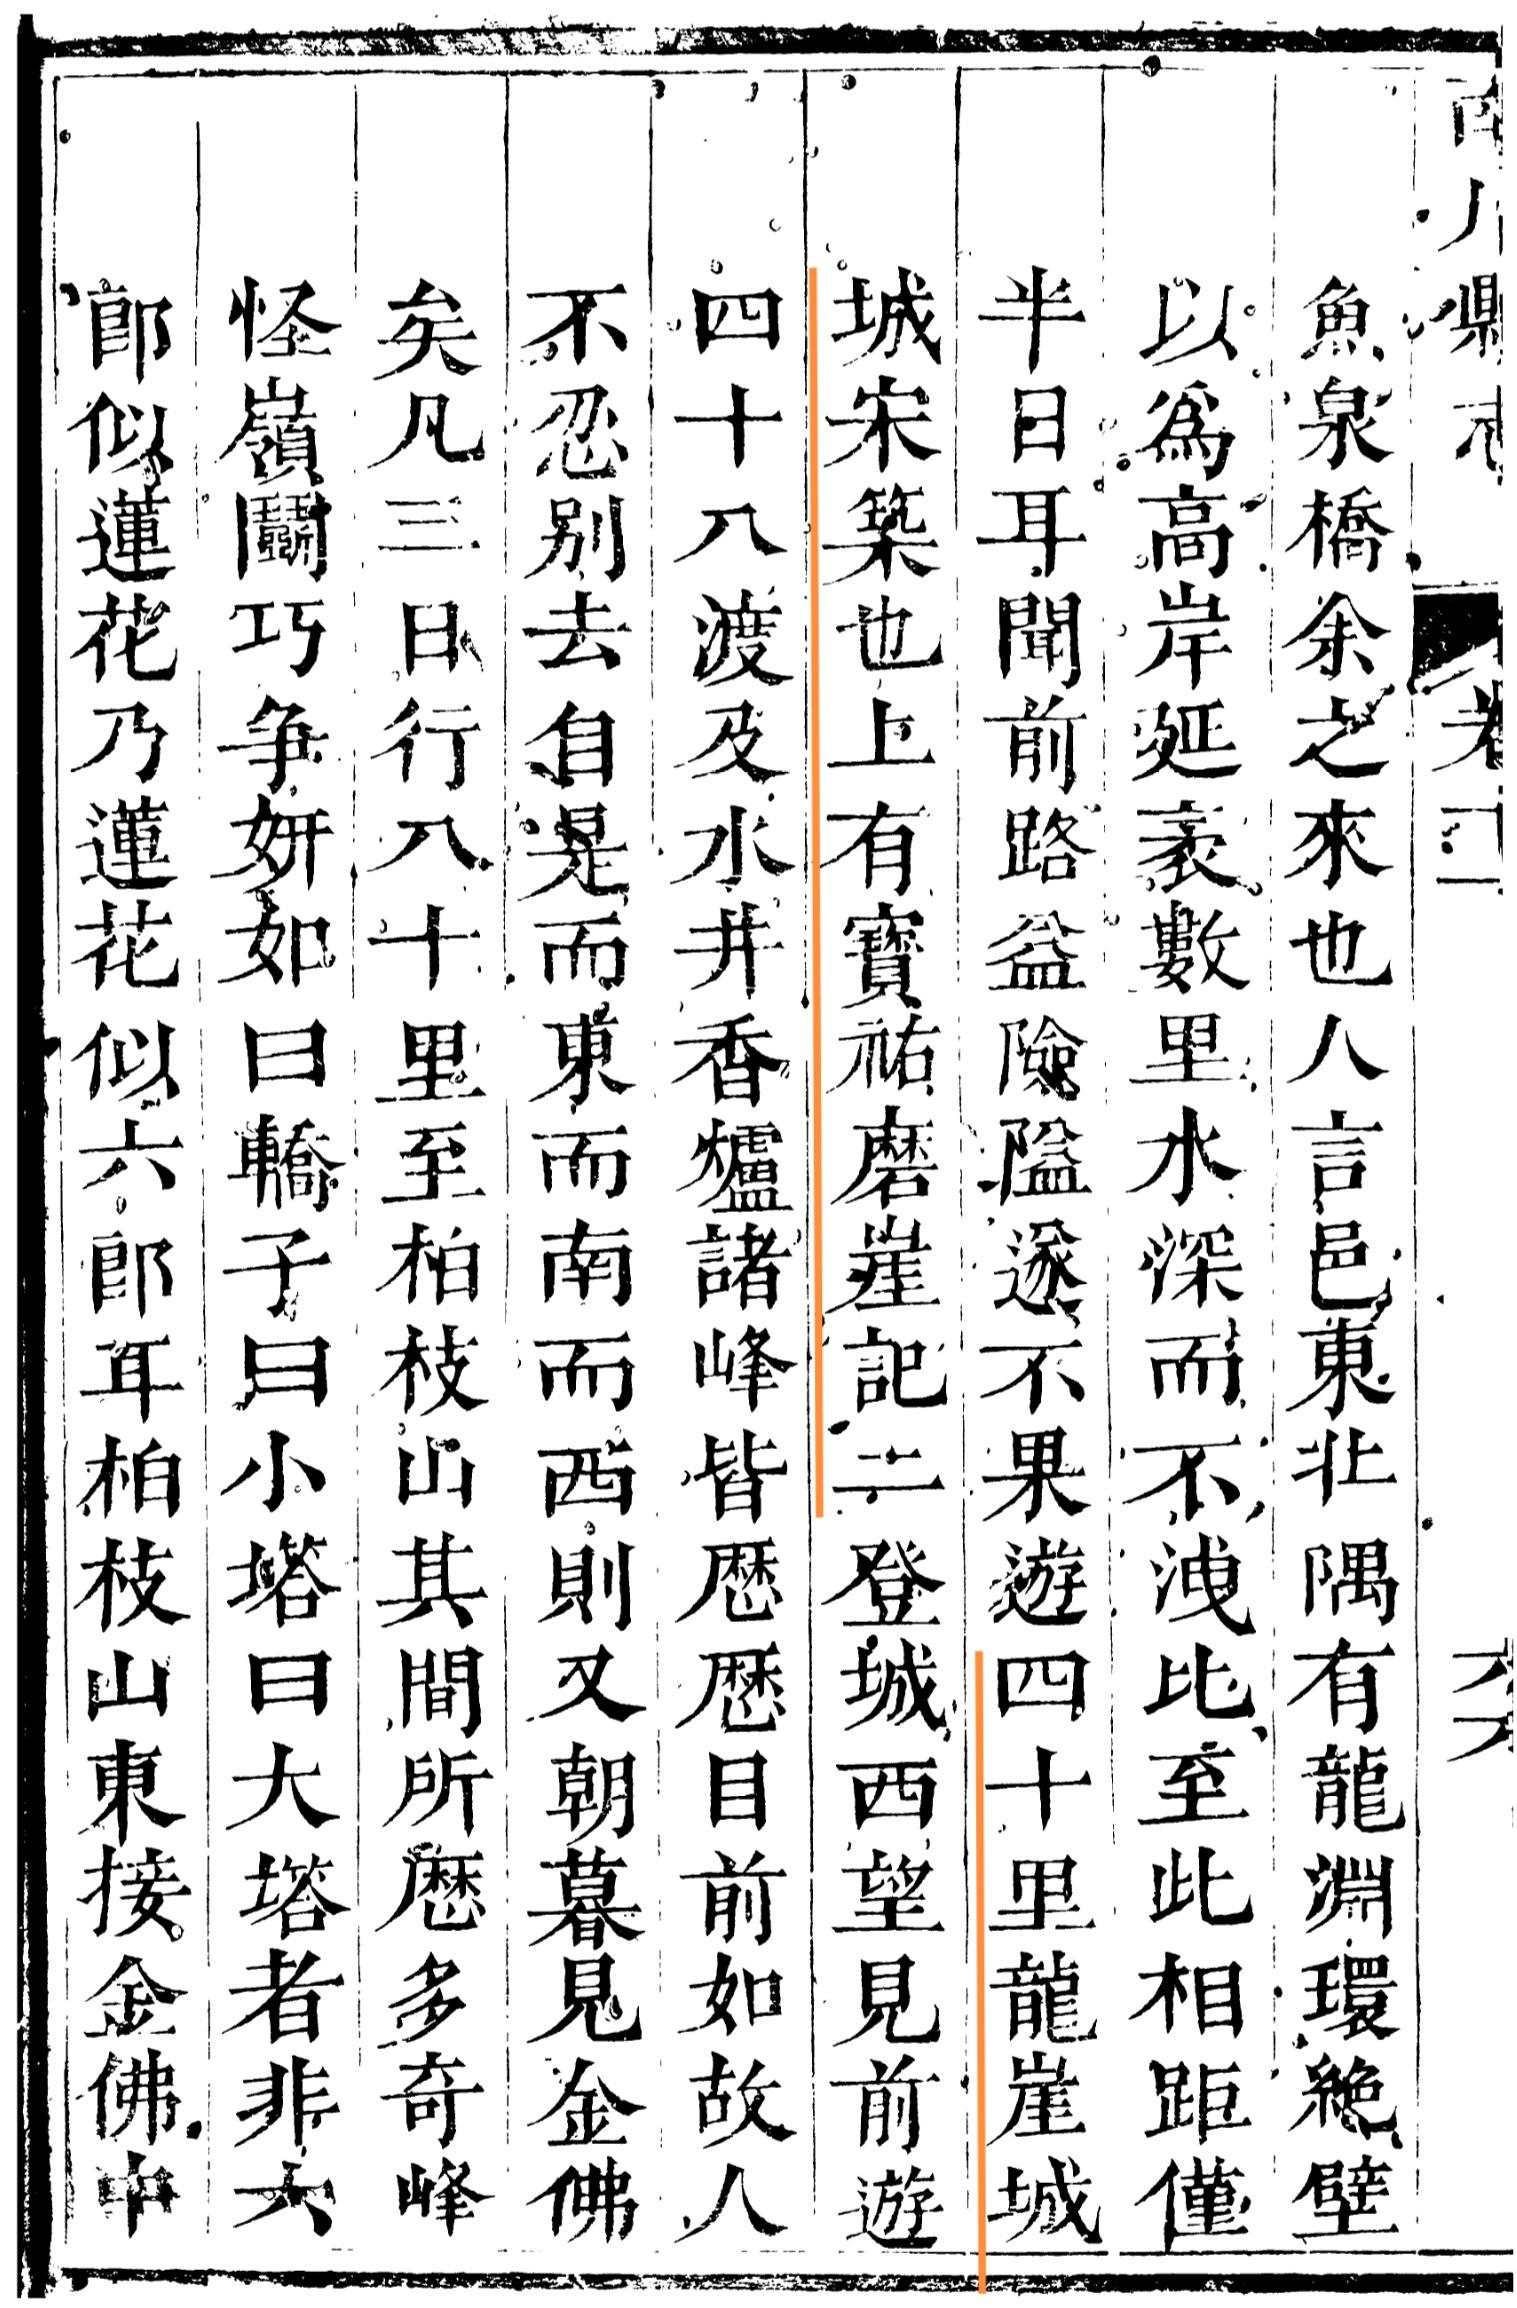 南川縣志
卷
魚泉橋余之來也人言邑東北隅有龍淵環絶壁
以爲高岸延袤數里水深而不洩比至此相距僅
半日耳聞前路益險隘遂不果遊四十里龍崖城
城宋築也上有寶祐磨崖記二登城西望見前遊
四十八渡及水井香爐諸峰皆歴歴目前如故人
不忍别去自是而東而南而西則又朝暮見金佛
矣凡三日行八十里至柏枝山其間所歴多奇峰
怪嶺鬭巧争妍如曰轎子曰小塔曰大塔者非六
郎似蓮花乃蓮花似六郎耳柏枝山東接金佛中